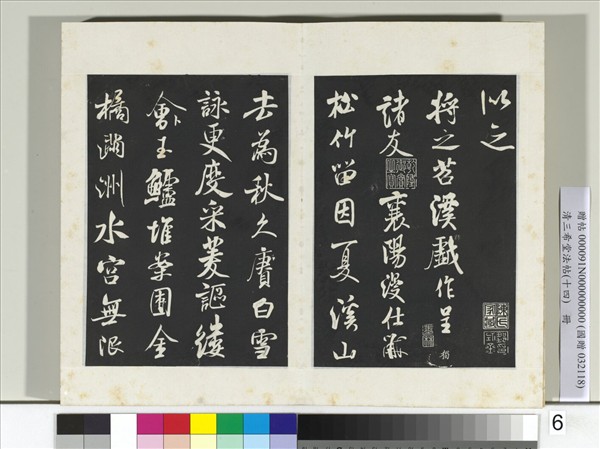 將之苕溪戲作呈
諸友 襄陽漫仕黻
松竹留因夏溪山
去為秋久賡白雪
詠更度采菱謳縷
會玉鱸堆案團金
橘滿洲水宮無限
贈帖 000091N000000000 (國贈 032118)
清三希堂法帖(十四) 冊
6